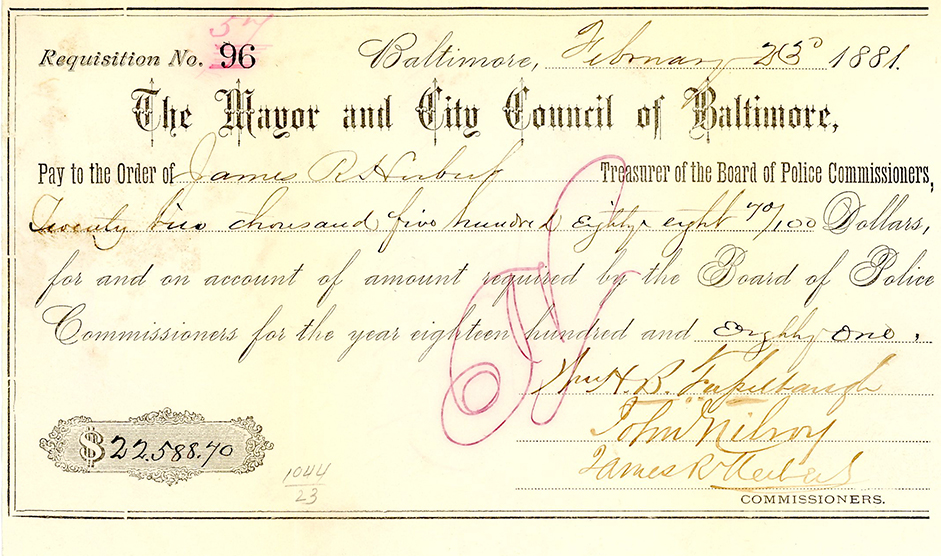 57
Requisition No. 96 Baltimore, February 23d 1881.
The Mayor and City Council of Baltimore,
Pay to the Order of James R Herbert Treasurer of the Board of Police Commissioners,
Twenty two thousand five hundred eighty eight 70/100 Dollars,
for and on account of amount required by the Board of Police
Commissioners for the year eighteen hundred and Eighty One.
Wm H. B. Fusselbaugh
John Milroy
James R Herbert
$22.588.70
1044
23
COMMISSIONERS.